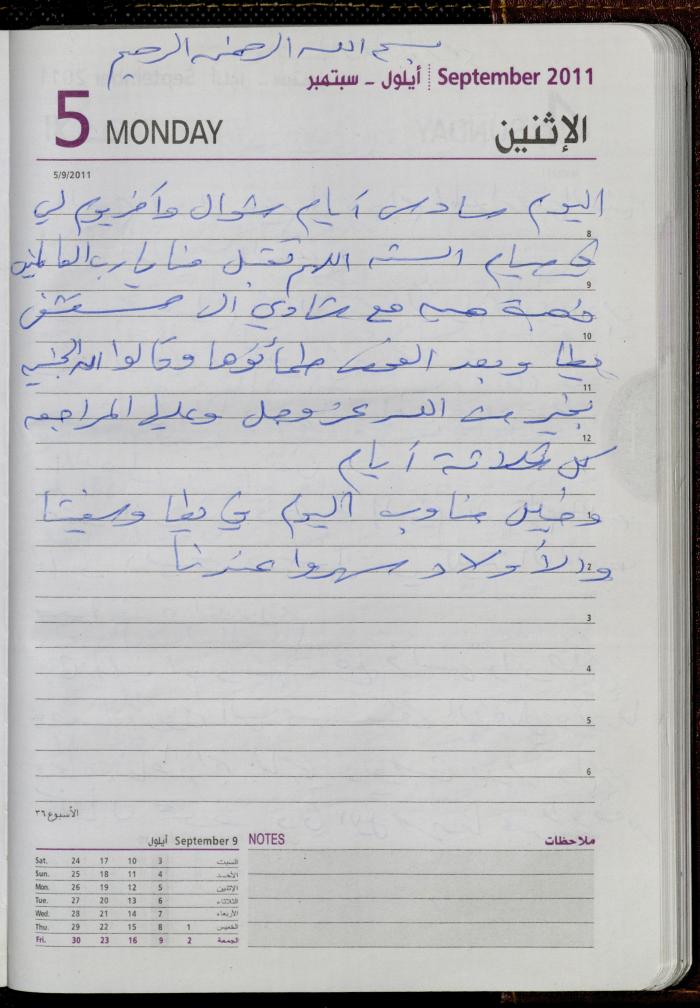 بسم الله الرحمن الرحيم
أيلول - سبتمبر | September 2011
5 MONDAY الإثنين
5/9/2011
اليوم سادس أيام شوال وآخر يوم لي
8
في صيام الستة اللهم تقبل منا يا رب العالمين
9
ذهبت هبه مع شادي الى مستشفى
10
يطا وبعد الفحص طمأنوها وقالوا
11
بخير من الله عز وجل وعليها المراجعه
12
كل ثلاثة أيام
وخليل مناوب اليوم في يطا
1
والأولاد سهروا عندنا
2
3
4
5
6
الأسبوع ٣٦
أيلول September 9
Sat. 24 17 10 3 السبت
Sun. 25 18 11 4 الأحد
Mon. 26 19 12 5 الإثنين
Tue. 27 20 13 6 الثلاثاء
Wed. 28 21 14 7 الأربعاء
Thu. 29 22 15 8 1 الخميس
Fri. 30 23 16 9 2 الجمعة
NOTES ملاحظات